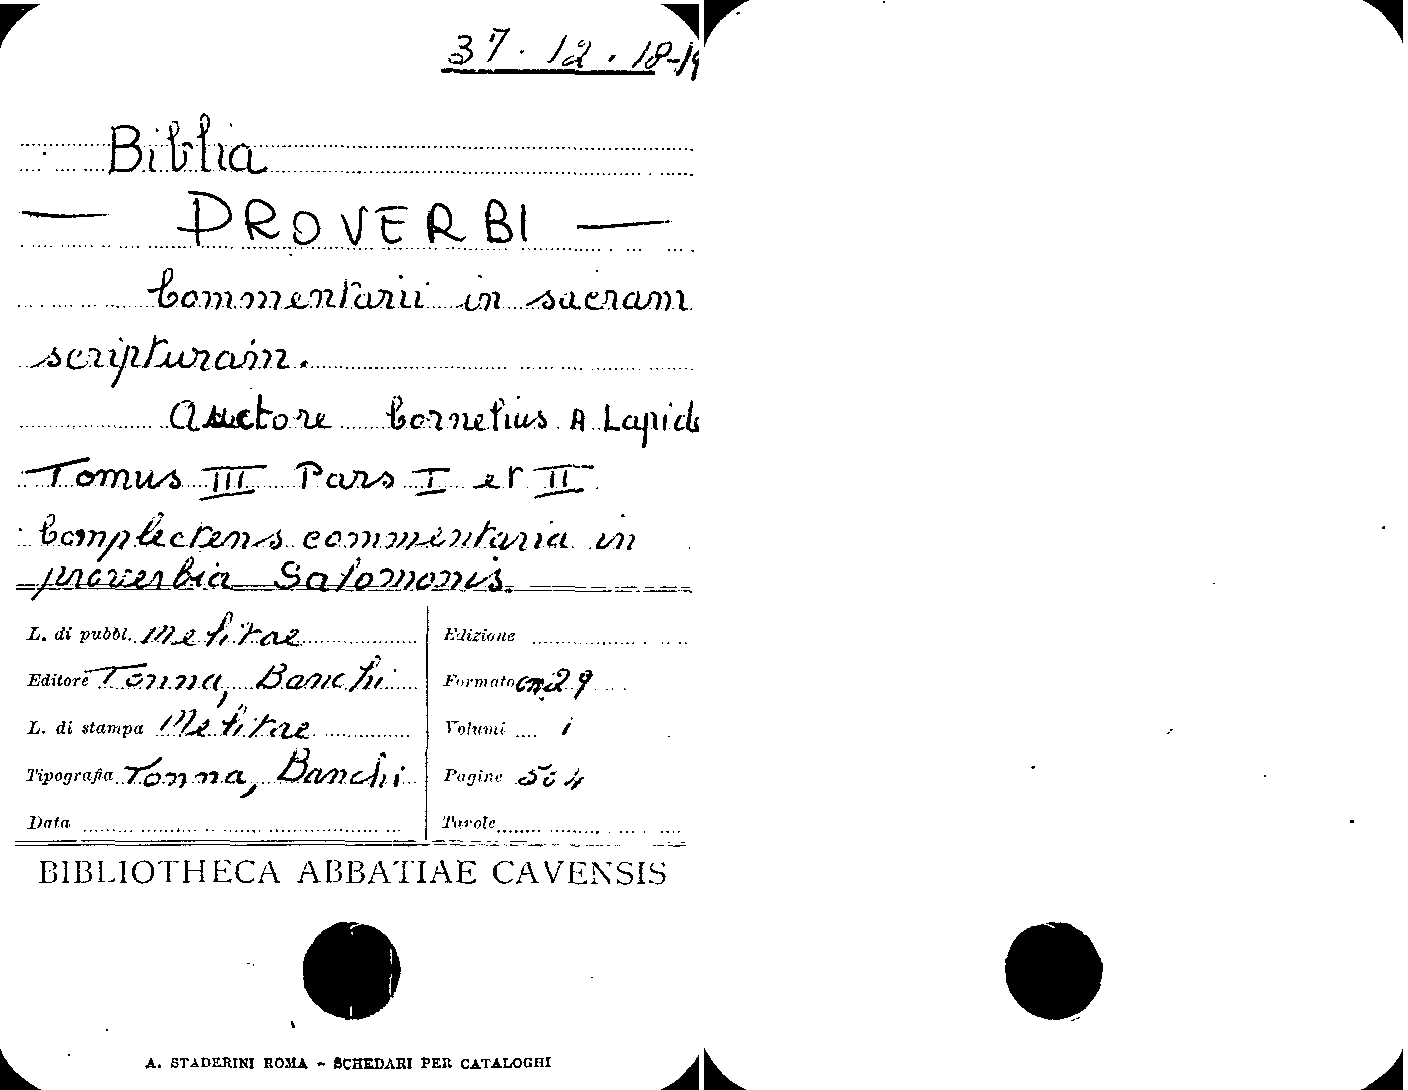 37.12.18-19
Biblia
— PROVERBI —
Commentarii in sacram
scripturam.
Auctore Cornelius A Lapide
Tomus III Pars I et II
Complectens commentaria in
proverbia Salomonis.
L. di pubbl. Melitae
Editore Tonna, Banchi
L. di stampa Melitae
Tipografia Tonna, Banchi
Data
Edizione
Formato cm. 29
Volumi 1
Pagine 504
Tavole
BIBLIOTHECA ABBATIAE CAVENSIS
A. STADERINI ROMA - SCHEDARI PER CATALOGHI